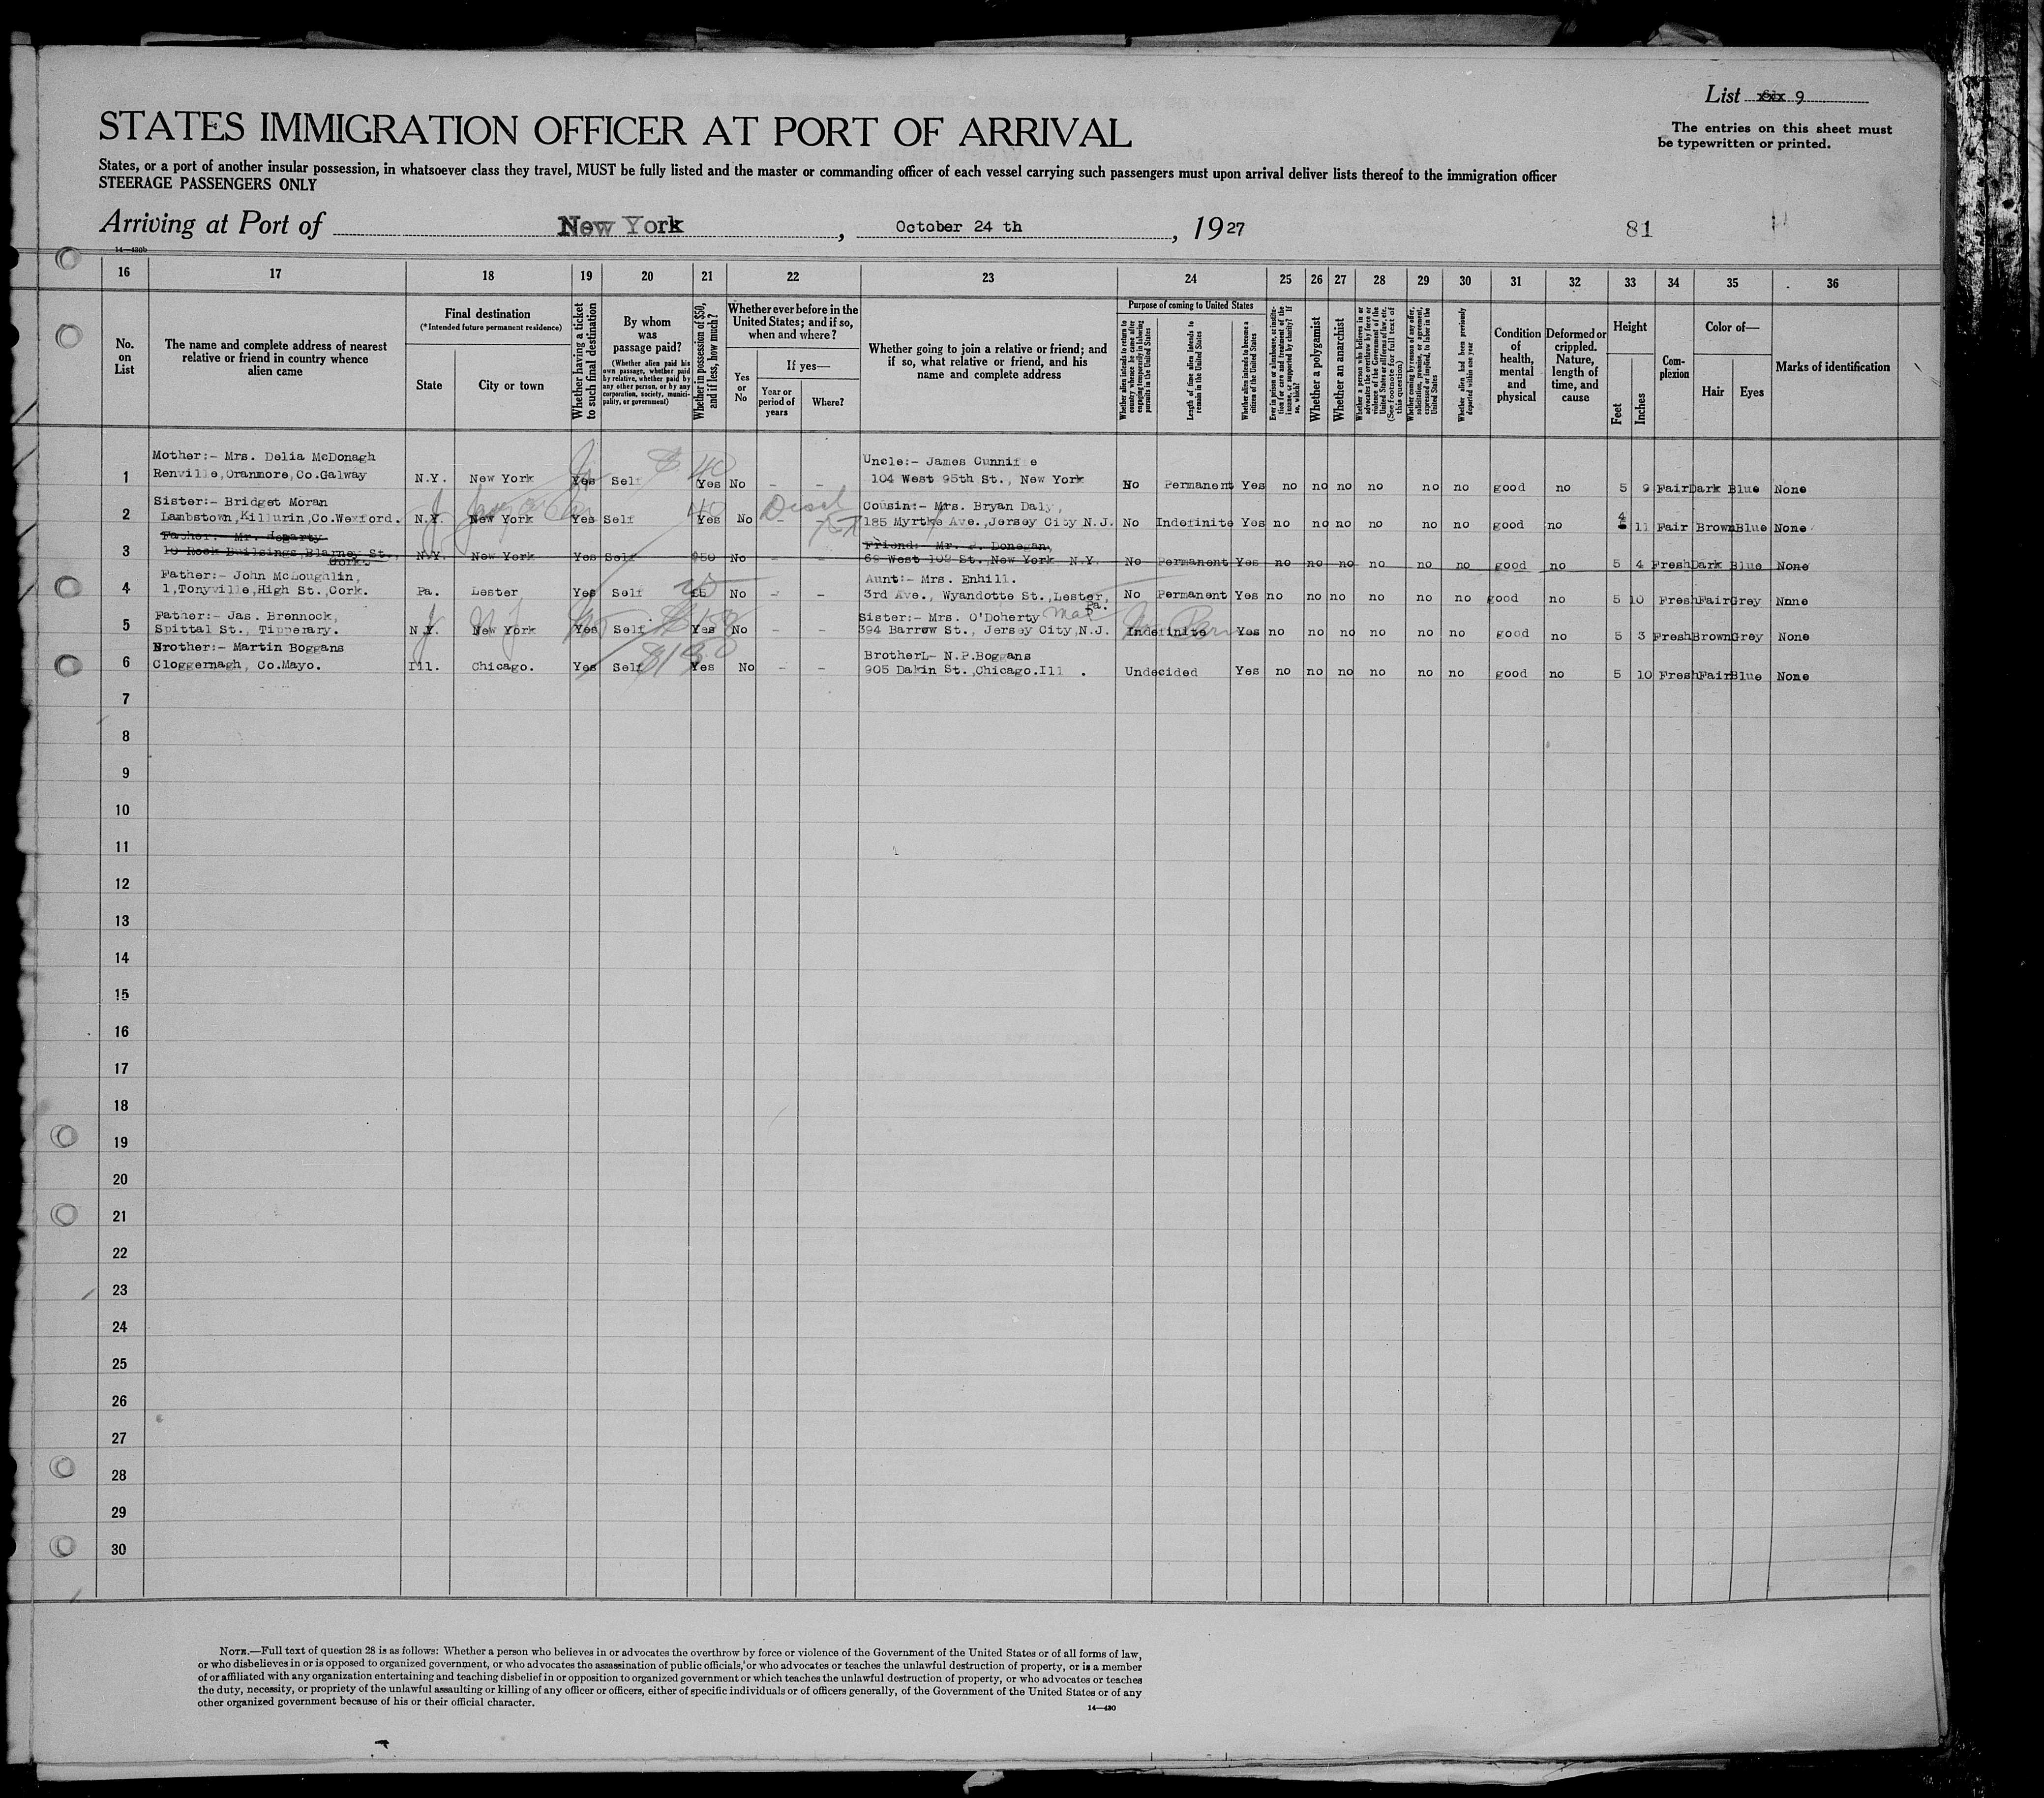 List xxx 9
STATES IMMIGRATION OFFICER AT PORT OF ARRIVAL
The entries on this sheet must
be typewritten or printed.
States, or a port of another insular possession, in whatsoever class they travel, MUST be fully listed and the master or commanding officer of each vessel carrying such passengers must upon arrival deliver lists thereof to the immigration officer
STEERAGE PASSENGERS ONLY
Arriving at Port of New York, October 24 th, 1927 81
14—430b
16 17 18 19 20 21 22 23 24 25 26 27 28 29 30 31 32 33 34 35 36
No. on List
The name and complete address of nearest relative or friend in country whence alien came
Final destination
(*Intended future permanent residence)
State
City or town
Whether having a ticket to such final destination
By whom was passage paid?
(Whether alien paid his own passage, whether paid by relative, whether paid by any other person, or by any corporation, society, municipality, or government)
Whether in possession of $50, and if less, how much?
Whether ever before in the United States; and if so, when and where?
Yes or No
If yes—
Year or period of years
Where?
Whether going to join a relative or friend; and if so, what relative or friend, and his name and complete address
Purpose of coming to United States
Whether alien intends to return to country whence he came after engaging temporarily in laboring pursuits in the United States
Length of time alien intends to remain in the United States
Whether alien intends to become a citizen of the United States
Ever in prison or almshouse, or institution for care and treatment of the insane, or supported by charity? If so, which?
Whether a polygamist
Whether an anarchist
Whether a person who believes in or advocates the overthrow by force or violence of the Government of the United States or all forms of law, etc. (See footnote for full text of this question)
Whether coming by reason of any offer, solicitation, promise, or agreement, expressed or implied, to labor in the United States
Whether alien had been previously deported within one year
Condition of health, mental and physical
Deformed or crippled. Nature, length of time, and cause
Height
Feet
Inches
Complexion
Color of—
Hair
Eyes
Marks of identification
Mother:- Mrs. Delia McDonagh Uncle:- James Cunniffe
1 Renville,Oranmore,Co.Galway N.Y. New York Yes Self 40 Yes No - - 104 West 95th St., New York No Permanent Yes no no no no no no good no 5 9 Fair Dark Blue None
Sister:- Bridget Moran Cousin:- Mrs. Bryan Daly,
2 Lambstown,Killurin,Co.Wexford. N.Y. New York Yes Self 40 Yes No - - 185 Myrtke Ave.,Jersey City N.J. No Indefinite Yes no no no no no no good no 4 11 Fair Brown Blue None
Father: Mr. Hogarty Friend:- Mr. P. Donegan,
3 10 Rock Buildings,Blarney St., Cork. N.Y. New York Yes Self $50 No - - 69 West 102 St.,New York N.Y. No Permanent Yes no no no no no no good no 5 4 Fresh Dark Blue None
Father:- John McLoughlin, Aunt:- Mrs. Enhill.
4 1,Tonyville,High St.,Cork. Pa. Lester Yes Self 25 £5 No - - 3rd Ave., Wyandotte St.,Lester, Pa. No Permanent Yes no no no no no no good no 5 10 Fresh Fair Grey None
Father:- Jas. Brennock, Sister:- Mrs. O'Doherty
5 Spittal St., Tipperary. N.Y. New York Yes Self Yes No - - 394 Barrow St., Jersey City,N.J. Indefinite Yes no no no no no no good no 5 3 Fresh Brown Grey None
Brother:- Martin Boggans BrotherL- N.P.Boggans
6 Cloggernagh, Co.Mayo. Ill. Chicago. Yes Self Yes No - - 905 Dakin St.,Chicago.Ill . Undecided Yes no no no no no no good no 5 10 Fresh Fair Blue None
7
8
9
10
11
12
13
14
15
16
17
18
19
20
21
22
23
24
25
26
27
28
29
30
NOTE.—Full text of question 28 is as follows: Whether a person who believes in or advocates the overthrow by force or violence of the Government of the United States or of all forms of law,
or who disbelieves in or is opposed to organized government, or who advocates the assassination of public officials, or who advocates or teaches the unlawful destruction of property, or is a member
of or affiliated with any organization entertaining and teaching disbelief in or opposition to organized government or which teaches the unlawful destruction of property, or who advocates or teaches
the duty, necessity, or propriety of the unlawful assaulting or killing of any officer or officers, either of specific individuals or of officers generally, of the Government of the United States or of any
other organized government because of his or their official character.
14—430